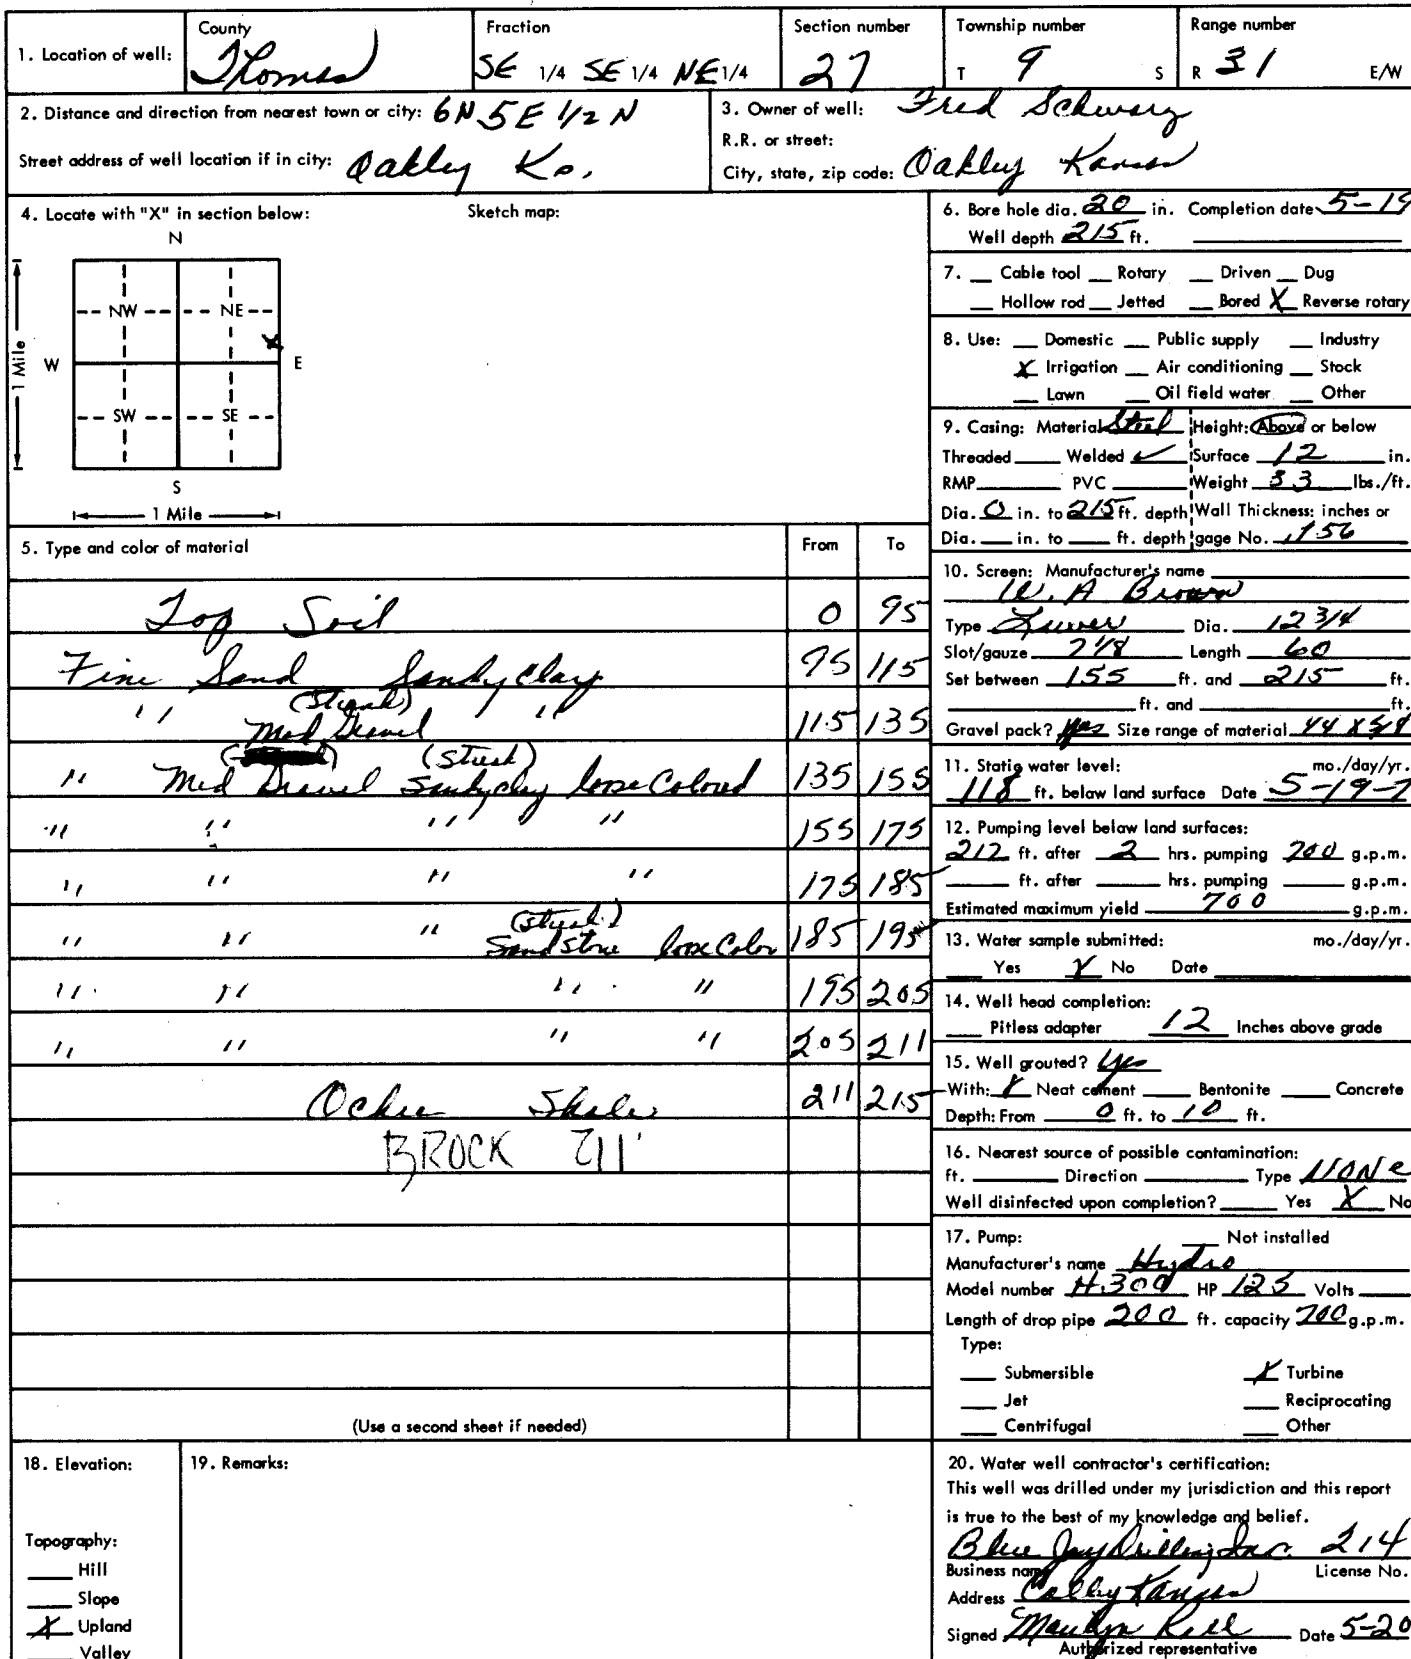 County Fraction Section number Township number Range number
1. Location of well: Thomas SE 1/4 SE 1/4 NE 1/4 27 T 9 S R 31 E/W
2. Distance and direction from nearest town or city: 6N 5E 1/2 N
Street address of well location if in city: Oakley Ks.
3. Owner of well: Fred Schwarz
R.R. or street:
City, state, zip code: Oakley Kansas
4. Locate with "X" in section below: Sketch map:
N
NW NE
X
W E
SW SE
S
1 Mile
1 Mile
5. Type and color of material From To
Top Soil 0 95
Fine Sand Sandy clay 95 115
(Streak)
" Med Gravel " 115 135
(Streak)
" Med Gravel Sandy clay loose Colored 135 155
" " " " 155 175
" " " " 175 185
(streak)
" " " Sand stone loose Color 185 195
" " " " 195 205
" " " " 205 211
Ocher Shale 211 215
BROCK 211'
(Use a second sheet if needed)
6. Bore hole dia. 20 in. Completion date 5-19
Well depth 215 ft.
7. Cable tool Rotary Driven Dug
Hollow rod Jetted Bored X Reverse rotary
8. Use: Domestic Public supply Industry
X Irrigation Air conditioning Stock
Lawn Oil field water Other
9. Casing: Material Steel Height: Above or below
Threaded Welded ✓ Surface 12 in.
RMP PVC Weight 33 lbs./ft.
Dia. 0 in. to 215 ft. depth Wall Thickness: inches or
Dia. in. to ft. depth gage No. .156
10. Screen: Manufacturer's name
W. A Brown
Type Dia. 12 3/4
Slot/gauze 2 1/8 Length 60
Set between 155 ft. and 215 ft.
ft. and ft.
Gravel pack? yes Size range of material
11. Static water level: mo./day/yr.
118 ft. below land surface Date 5-19-7
12. Pumping level below land surfaces:
212 ft. after 2 hrs. pumping 700 g.p.m.
ft. after hrs. pumping g.p.m.
Estimated maximum yield 700 g.p.m.
13. Water sample submitted: mo./day/yr.
Yes X No Date
14. Well head completion:
Pitless adapter 12 Inches above grade
15. Well grouted? yes
With: X Neat cement Bentonite Concrete
Depth: From 0 ft. to 10 ft.
16. Nearest source of possible contamination:
ft. Direction Type NONE
Well disinfected upon completion? Yes X No
17. Pump: Not installed
Manufacturer's name Hydro
Model number H.300 HP 125 Volts
Length of drop pipe 200 ft. capacity 700 g.p.m.
Type:
Submersible X Turbine
Jet Reciprocating
Centrifugal Other
18. Elevation:
Topography:
Hill
Slope
X Upland
Valley
19. Remarks:
20. Water well contractor's certification:
This well was drilled under my jurisdiction and this report
is true to the best of my knowledge and belief.
Blue Jay Drilling Inc. 214
Business name License No.
Address Colby Kansas
Signed Marilyn Date 5-20
Authorized representative